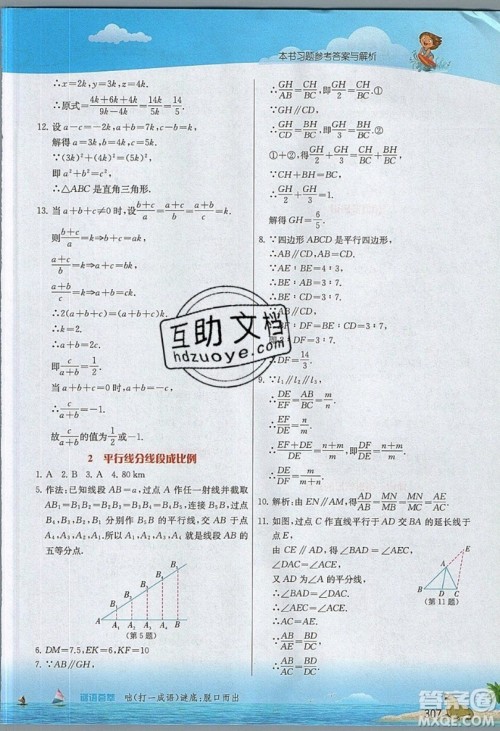 本书习题参考答案与解析
∴x=2k, y=3k, z=4k.
∴原式=(4k+6k+4k)/(4k-6k+18k)=14k/16k=7/8.
12. 设 a-c=-2k, a+b=7k, c-b=k,
解得 a=3k, b=4k, c=5k.
∵(3k)²+(4k)²=(5k)²,
即 a²+b²=c²,
∴△ABC 是直角三角形.
13. 当 a+b+c≠0 时,设(b+c)/a=k.
则(b+c)/a=k, (a+c)/b=k,
(a+b)/c=k.
∴b+c=ak, a+c=bk,
a+b=ck.
∴2(a+b+c)=(a+b+c)k.
∴k=2.
∴(a+b)/c=2, 即c/(a+b)=1/2.
当 a+b+c=0 时,
a+b=-c.
∴c/(a+b)=-1.
故c/(a+b)的值为1/2或-1.
2 平行线分线段成比例
1. A 2. B 3. A 4. 80 km
5. 作法:已知线段 AB=a,过点 A 作任一射线并截取
AB₁=B₁B₂=B₂B₃=B₃B₄=B₄B₅,连接 B₅B,过点
B₄、B₃、B₂、B₁ 分别作 B₅B 的平行线,交 AB 于点
A₄、A₃、A₂、A₁,所以 A₁、A₂、A₃、A₄ 就是线段 AB 的
五等分点.
B₅
B₄
B₃
B₂
B₁
A A₁ A₂ A₃ A₄ B
(第 5 题)
6. DM=7.5, EK=6, FK=10
7. ∵AB∥GH,
∴GH/AB=CH/BC, 即GH/2=CH/BC.①
∵GH∥CD,
∴GH/CD=BH/BC, 即GH/3=BH/BC.②
①+②,得GH/2+GH/3=CH/BC+BH/BC.
∵CH+BH=BC,
∴GH/2+GH/3=1.
解得 GH=6/5.
8. ∵四边形 ABCD 是平行四边形,
∴AB∥CD, AB=CD.
∵AB∶BE=4∶3,
∴CD∶BE=4∶3.
∵AB∥CD,
∴DF=14/3.
9. ∵l₁∥l₂∥l₃,
∴DE/EF=AB/BC=m/n.
∴(EF+DE)/DE=(n+m)/m, 即DF/DE=(n+m)/m.
∴DE/DF=m/(m+n).
10. 解析:由 EN∥AD,得AD/AB=MN/MB=MC/NC.
11. 如图,过点 C 作直线平行于 AD 交 BA 的延长线于
点 E,
由 CE∥AD,得∠BAD=∠AEC,
∠DAC=∠ACE.
又 AD 为∠A 的平分线,
∴∠BAD=∠DAC,
∠AEC=∠ACE.
∴AE=AC.
∴AE/AB=DC/BD.
∴AC/AB=DC/BD,
即AB/AC=BD/DC.
E
A
B D C
(第 11 题)
互助文档
hdzuoye.com
谜语荟萃 咄(打一成语)谜底:脱口而出
307
答案圈
MXQE.COM